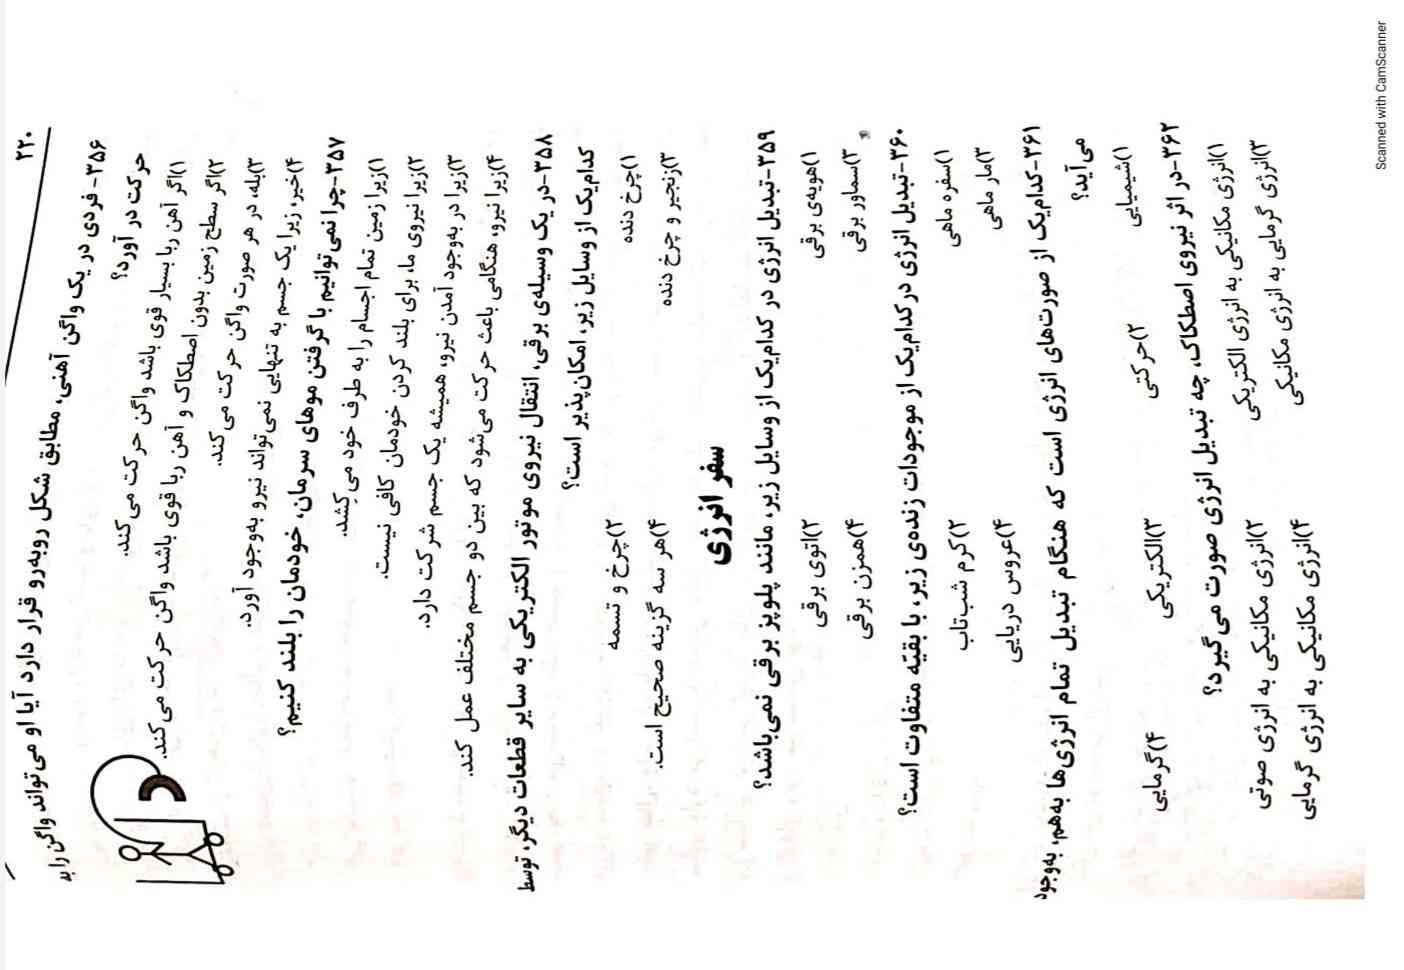 ۲۲۰
۳۵۶-فردی در یک واگن آهنی، مطابق شکل روبه‌رو قرار دارد آیا او می‌تواند واگن را به
حرکت در آورد؟
۱)اگر آهن ربا بسیار قوی باشد واگن حرکت می کند.
۲)اگر سطح زمین بدون اصطکاک و آهن ربا قوی باشد واگن حرکت می کند.
۳)بله، در هر صورت واگن حرکت می کند.
۴)خیر، زیرا یک جسم به تنهایی نمی‌تواند نیرو به‌وجود آورد.
۳۵۷-چرا نمی‌توانیم با گرفتن موهای سرمان، خودمان را بلند کنیم؟
۱)زیرا زمین تمام اجسام را به طرف خود می‌کِشد.
۲)زیرا نیروی ما، برای بلند کردن خودمان کافی نیست.
۳)زیرا در به‌وجود آمدن نیرو، همیشه یک جسم شرکت دارد.
۴)زیرا نیرو، هنگامی باعث حرکت می‌شود که بین دو جسم مختلف عمل کند.
۳۵۸-در یک وسیله‌ی برقی، انتقال نیروی موتور الکتریکی به سایر قطعات دیگر، توسط
کدام‌یک از وسایل زیر، امکان‌پذیر است؟
۱)چرخ دنده ۲)چرخ و تسمه
۳)زنجیر و چرخ دنده ۴)هر سه گزینه صحیح است.
سفر انرژی
۳۵۹-تبدیل انرژی در کدام‌یک از وسایل زیر، مانند پلوپز برقی نمی‌باشد؟
۱)هویه‌ی برقی ۲)اتوی برقی
۳)سماور برقی ۴)همزن برقی
۳۶۰-تبدیل انرژی در کدام‌یک از موجودات زنده‌ی زیر، با بقیّه متفاوت است؟
۱)سفره ماهی ۲)کرم شب‌تاب
۳)مار ماهی ۴)عروس دریایی
۳۶۱-کدام‌یک از صورت‌های انرژی است که هنگام تبدیل تمام انرژی‌ها به‌هم، به‌وجود
می‌آید؟
۱)شیمیایی ۲)حرکتی ۳)الکتریکی ۴)گرمایی
۳۶۲-در اثر نیروی اصطکاک، چه تبدیل انرژی صورت می‌گیرد؟
۱)انرژی مکانیکی به انرژی الکتریکی ۲)انرژی مکانیکی به انرژی صوتی
۳)انرژی گرمایی به انرژی مکانیکی ۴)انرژی مکانیکی به انرژی گرمایی
Scanned with CamScanner